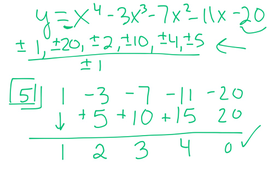 y = x⁴ - 3x³ - 7x² - 11x - 20
± 1, ±20, ±2, ±10, ±4, ±5 ←
±1
5| 1 -3 -7 -11 -20
↓ +5 +10 +15 20
1 2 3 4 0 ✓